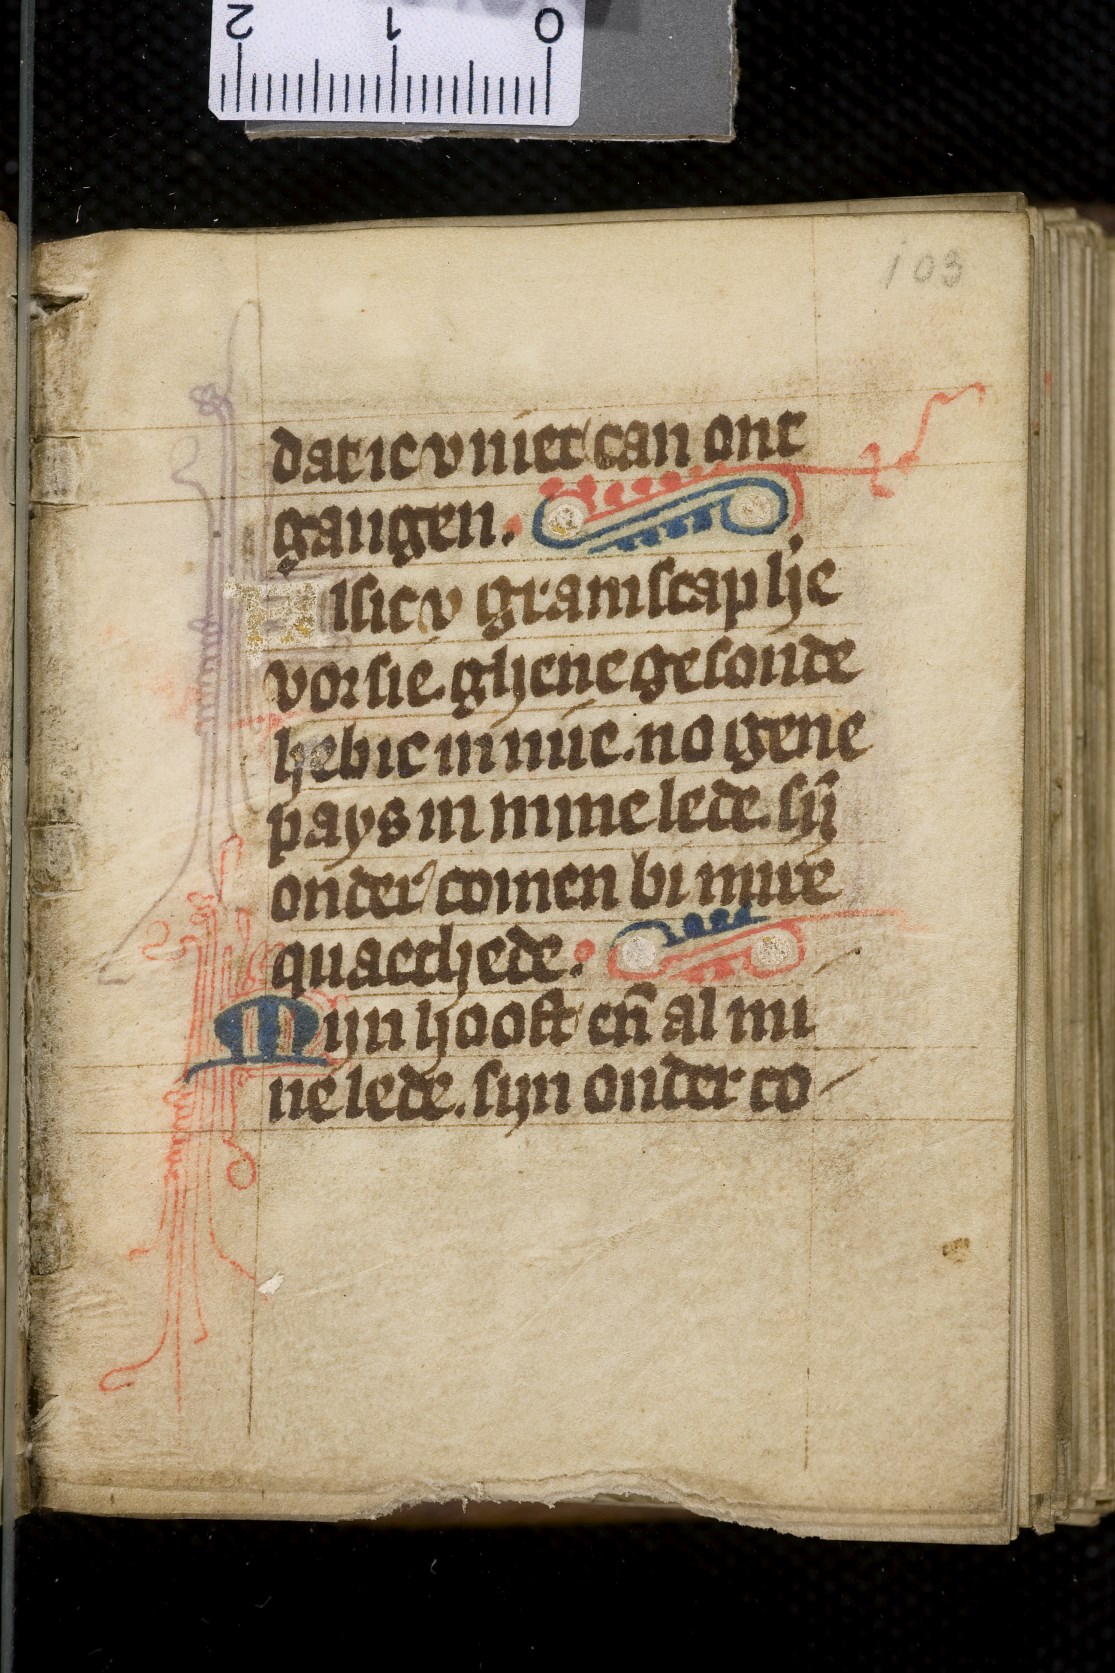 2 1 0
103
dat ic v niet can ont
gangen.
Alsic v gramscap he
vor sie. ghene gesonde
heb ic in mie. no gene
pays in mine lede. sÿ
onder comen bi mire
quaethede.
Mijn hooft eñ al mi
ne lede. sijn onder co